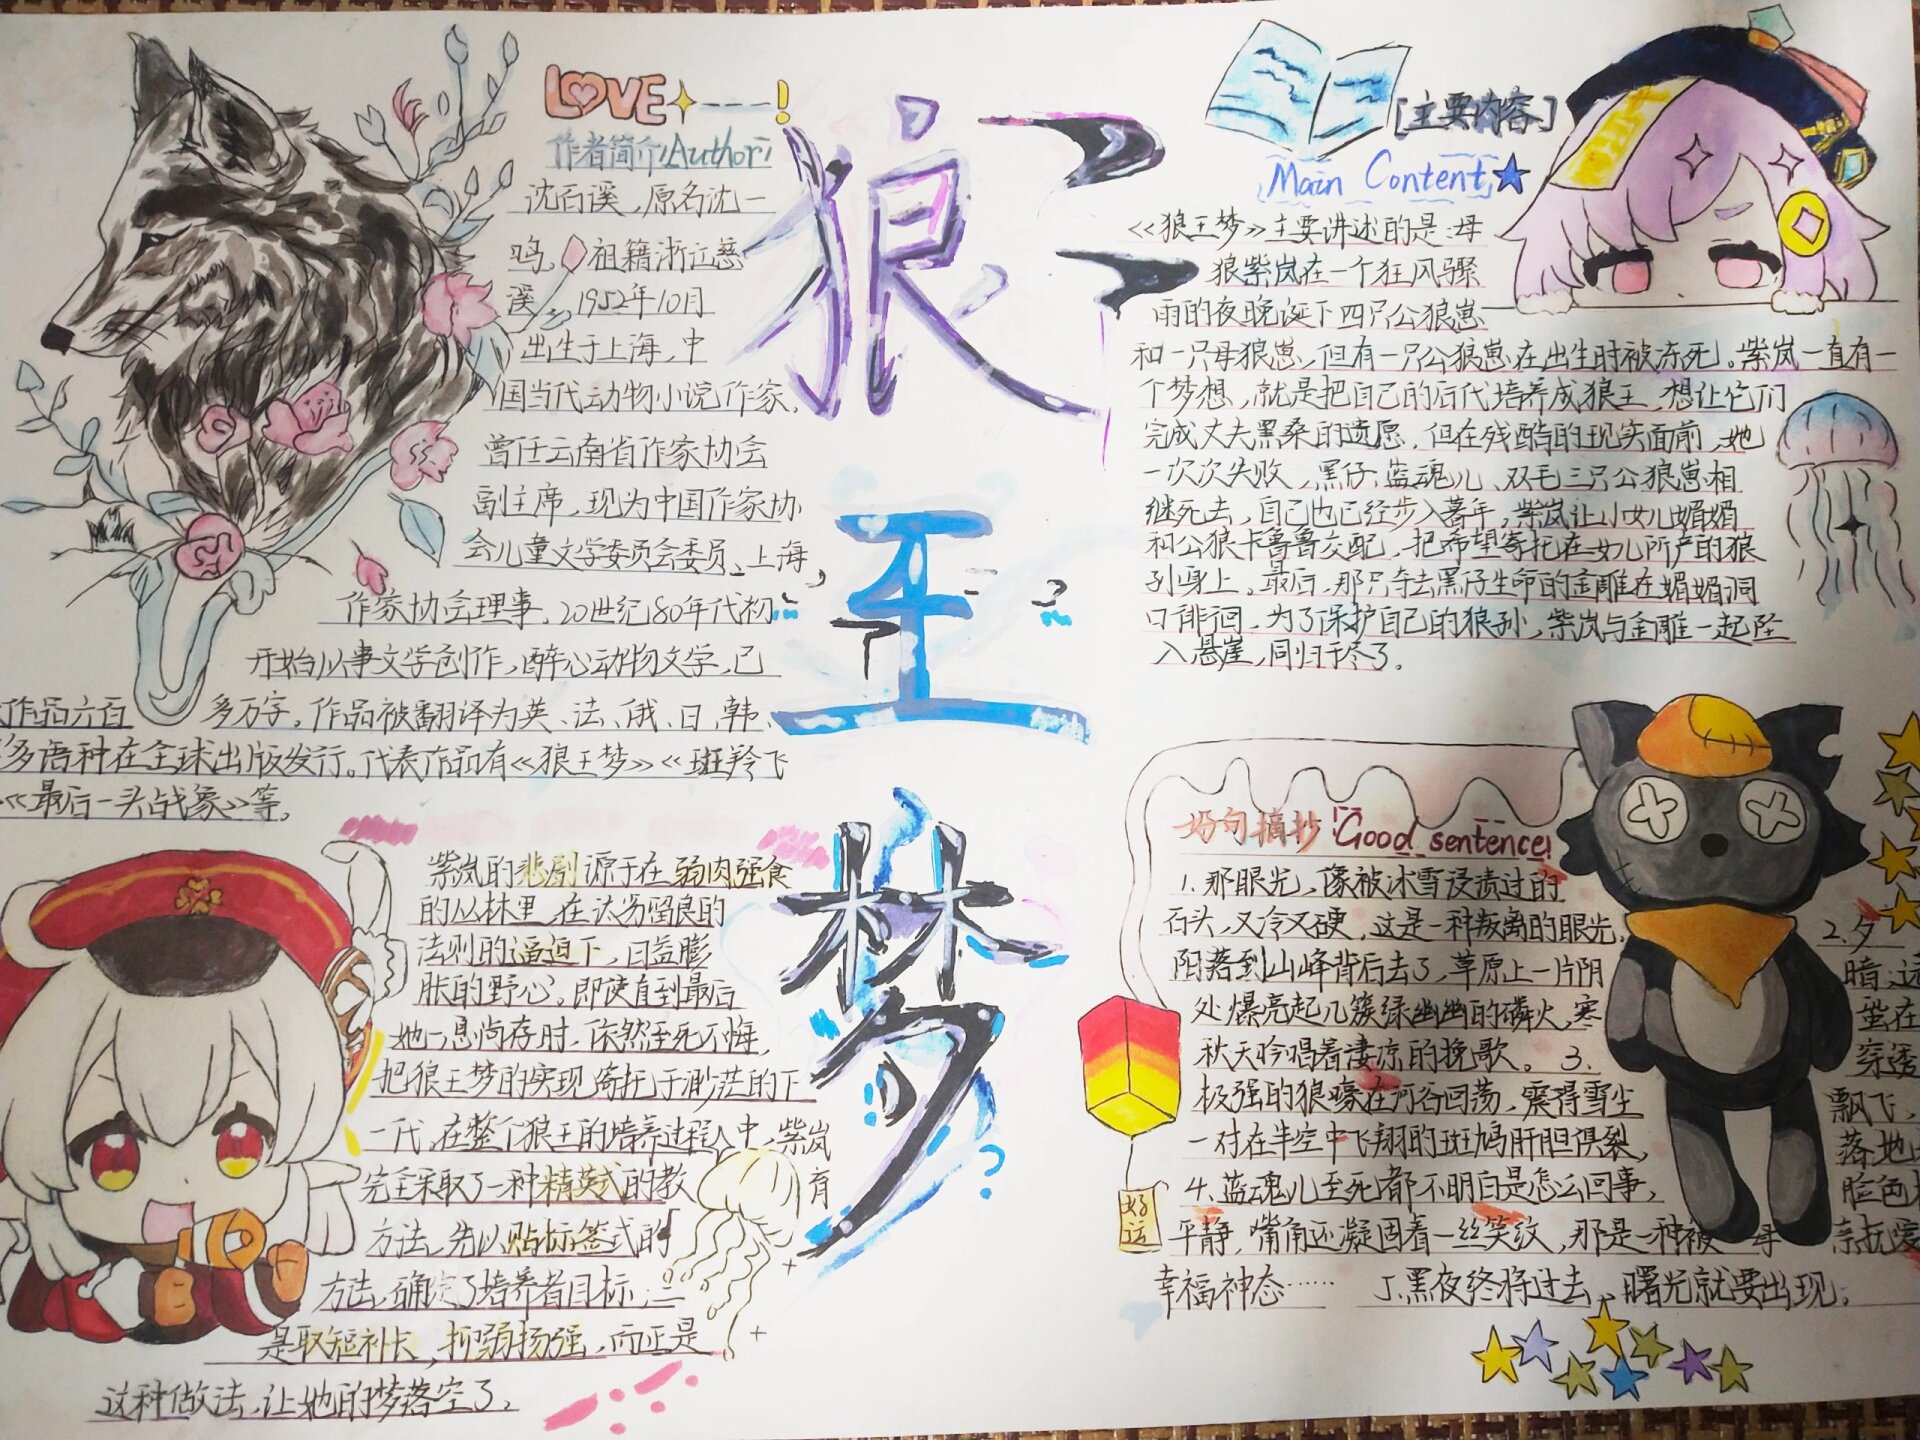 LOVE
作者简介 Author
沈百溪,原名沈一
鸣,祖籍浙江慈
溪,1952年10月
出生于上海,中
国当代动物小说作家,
曾任云南省作家协会
副主席,现为中国作家协
会儿童文学委员会委员、上海
作家协会理事,20世纪80年代初
开始从事文学创作,醉心动物文学,已
作品六百多万字。作品被翻译为英、法、俄、日、韩、
多语种在全球出版发行。代表作品有《狼王梦》《斑羚飞
《最后一头战象》等。
紫岚的悲剧源于在弱肉强食
的丛林里,在汰劣留良的
法则的逼迫下,日益膨
胀的野心。即使直到最后
她一息尚存时,依然至死不悔,
把狼王梦的实现寄托于渺茫的下
一代,在整个狼王的培养过程中,紫岚
完全采取了一种精英式的教育
方法,先以贴标签式的
方法,确定了培养者目标,二
是取短补长,抑弱扬强,而正是
这种做法,让她的梦落空了。
狼王梦
[主要内容]
Main Content
《狼王梦》主要讲述的是:母
狼紫岚在一个狂风骤
雨的夜晚诞下四只公狼崽
和一只母狼崽,但有一只公狼崽在出生时被冻死。紫岚一直有一
个梦想,就是把自己的后代培养成狼王,想让它们
完成丈夫黑桑的遗愿,但在残酷的现实面前,她
一次次失败,黑仔、蓝魂儿、双毛三只公狼崽相
继死去,自己也已经步入暮年,紫岚让小女儿媚媚
和公狼卡鲁鲁交配,把希望寄托在女儿所产的狼
孙身上。最后,那只夺去黑仔生命的金雕在媚媚洞
口徘徊,为了保护自己的狼孙,紫岚与金雕一起坠
入悬崖,同归于尽了。
好句摘抄 Good sentence!
1.那眼光,像被冰雪浸渍过的
石头,又冷又硬,这是一种叛离的眼光。 2.夕
阳落到山峰背后去了,草原上一片阴暗,远
处爆亮起几簇绿幽幽的磷火,寒蛩在
秋天吟唱着凄凉的挽歌。3. 穿透
极强的狼嚎在河谷回荡,震得雪尘飘飞,
一对在半空中飞翔的斑鸠肝胆俱裂, 落地
4.蓝魂儿至死都不明白是怎么回事, 脸色
平静,嘴角还凝固着一丝笑纹,那是一种被母亲抚爱
幸福神态…… 5.黑夜终将过去,曙光就要出现。
好运